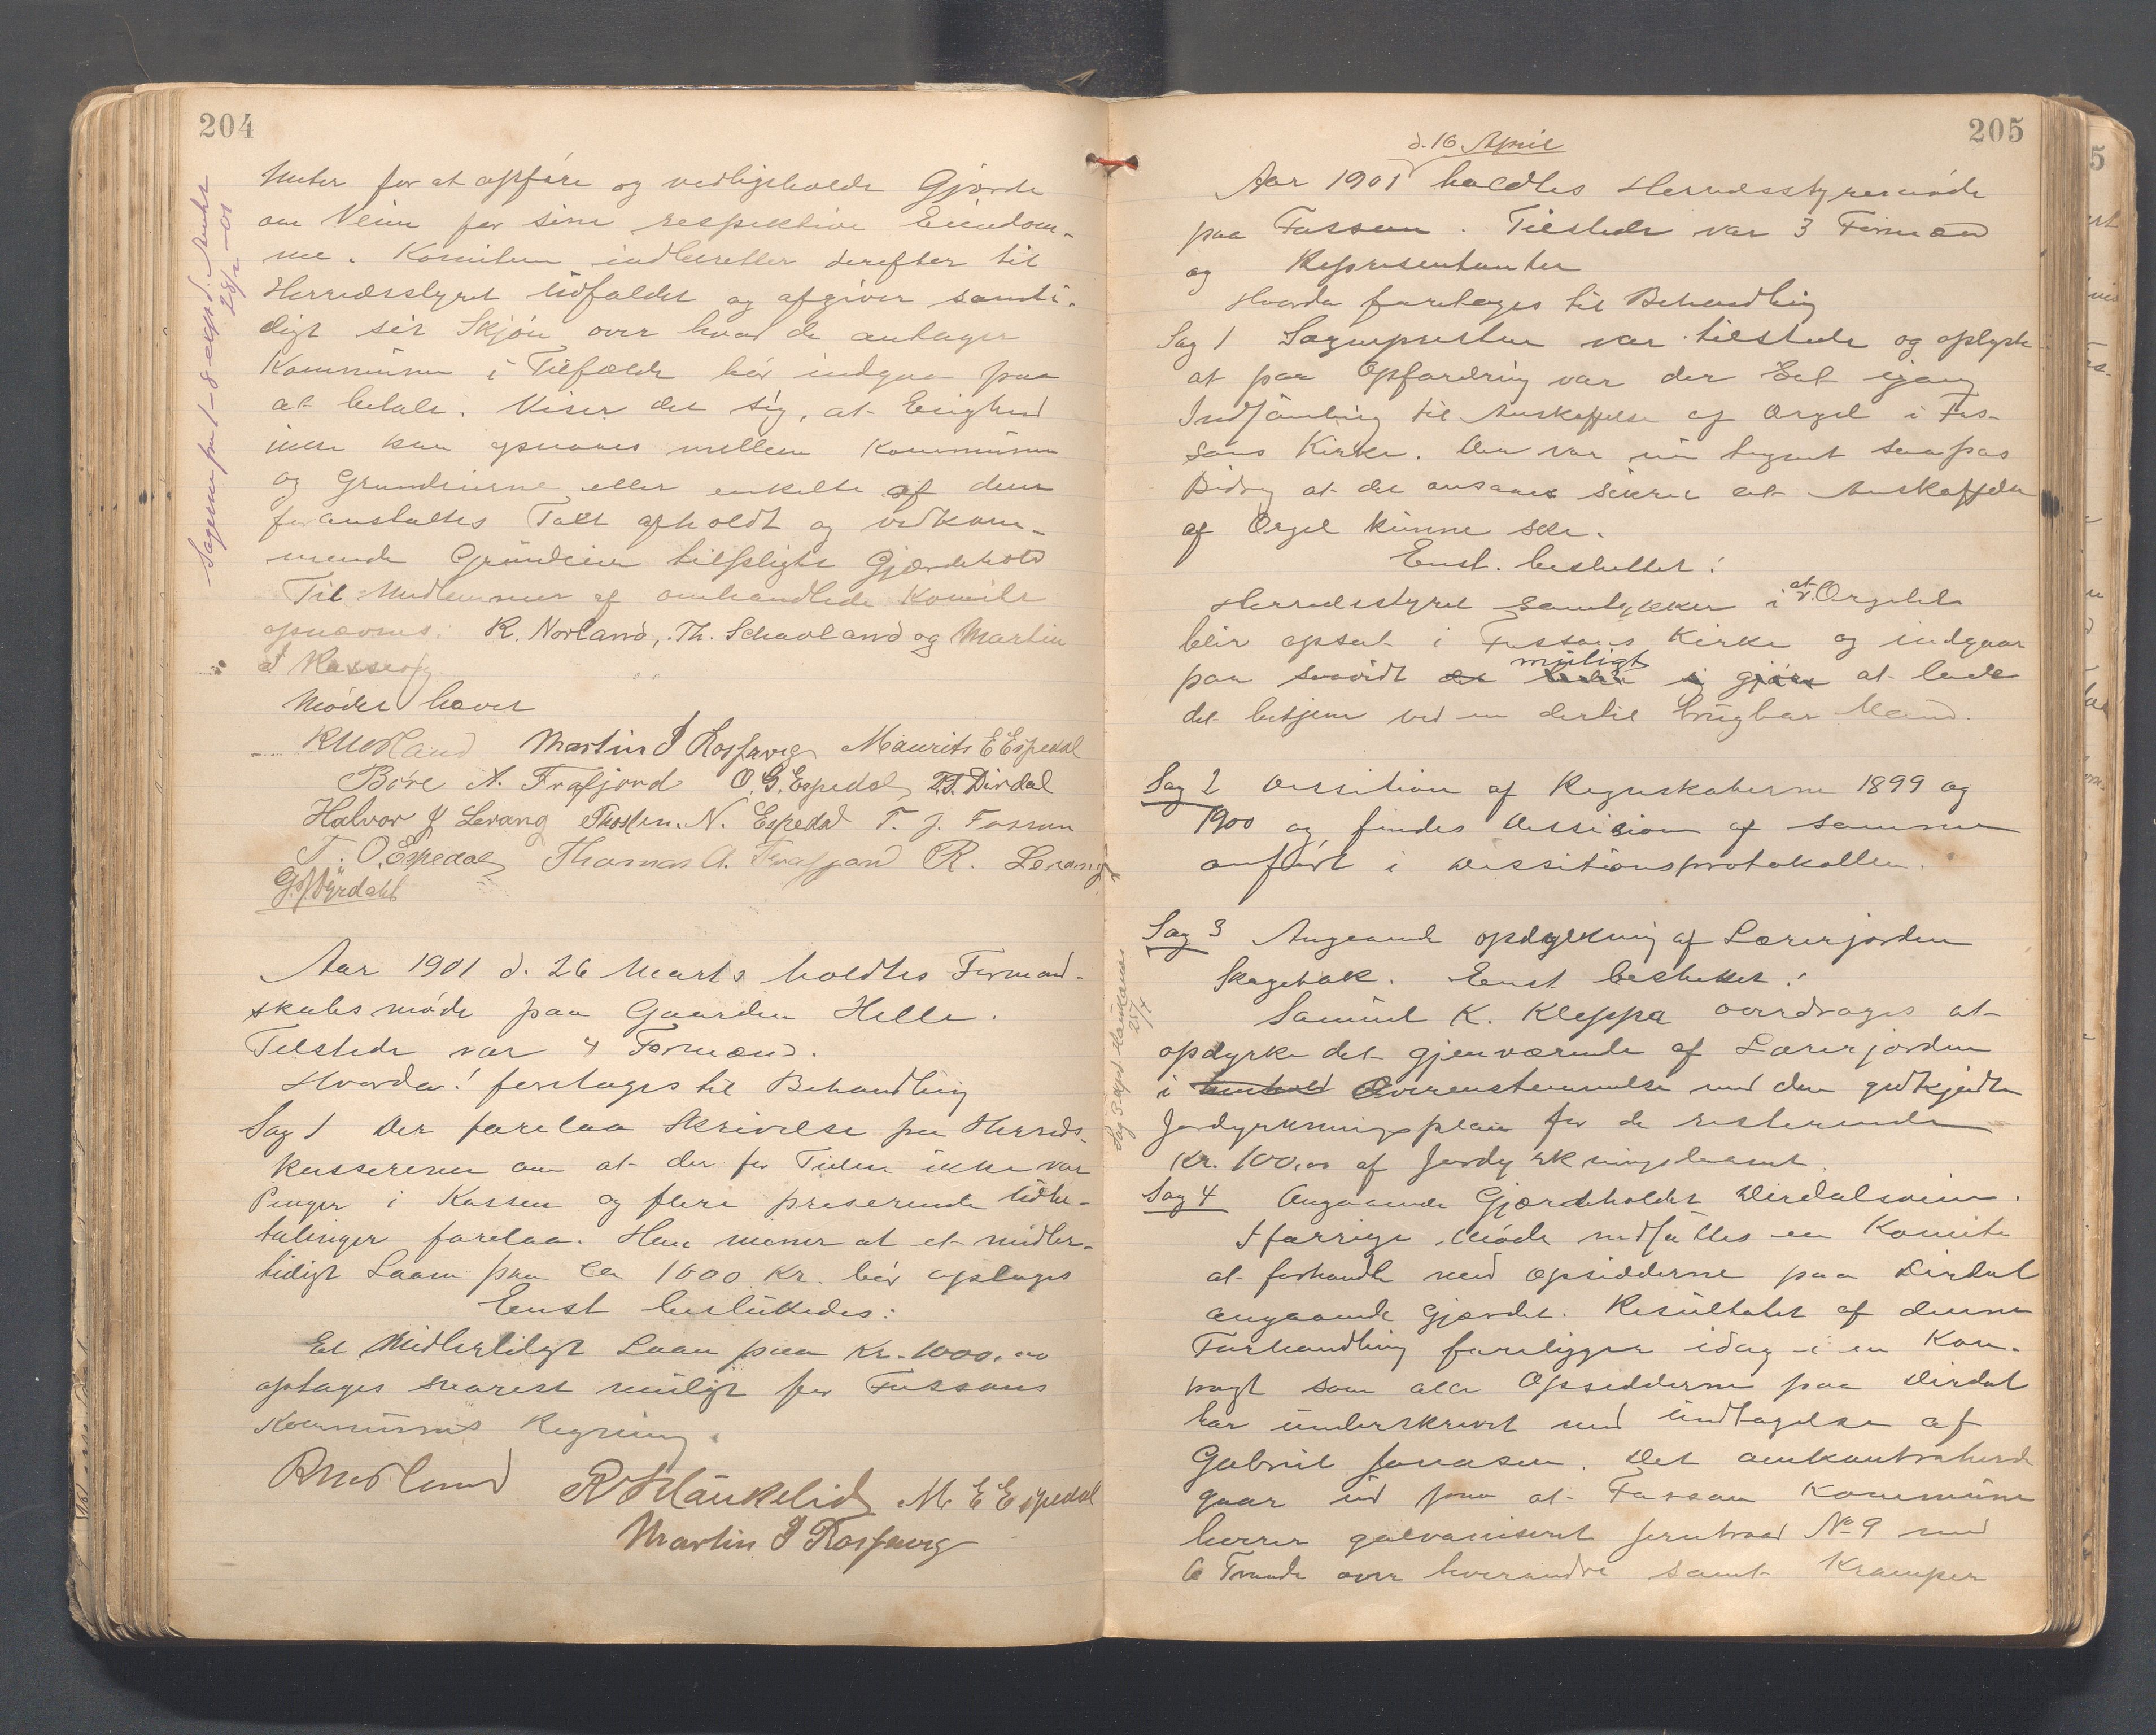 204
Meter for at opføre og vedligeholde Gjærde
om Veien for sine respektive Eiendom-
me. Komiteen indberetter derefter til
Herredsstyret Udfaldet og afgiver samti-
digt sit Skjøn over hvad de antager
Kommunen i Tilfælde bør indgaa paa
at betale. Viser det sig, at Enighed
ikke kan opnaaes mellem Kommunen
og Grundeierne eller enkelte af dem
foranstaltes Takt afholdt og vedkom-
mende Grundeier tilpligtes Gjærdehold
Til Medlemmer af omhandlede Komite
opnævnes: R. Norland, Th. Schavland og Martin
Møder hævet
R Norland Martin J Rossavig Maurits E Espedal
Børe A. Frafjord O. G. Espedal T.T. Dirdal
Halvor J Levang Thosten. N. Espedal T. J. Fossan
T. O. Espedal Thomas A. Frafjord R. Levang
G. J. Dyrdahl
Aar 1901 d. 26 Marts holdtes Formand-
skabsmøde paa Gaarden Helle.
Tilstede var 4 Formænd.
Hvorda! foretages til Behandling
Sag 1 Der forelaa Skrivelse fra Herreds-
kassereren om at der for Tiden ikke var
Penger i Kassen og flere preserende Udbe-
talinger forelaa. Han mener at et midler-
tidigt Laan paa ca 1000 Kr. bør optages
Enst besluttedes:
Et Midlertidigt Laan paa Kr. 1000,00
optages snarest muligt for Fossans
Kommunes Regning.
R Norland R Haukelid M E Espedal
Martin J Rossavig
205
d. 16 April
Aar 1901 holdtes Herredsstyremøde
paa Fossan. Tilstede var 3 Formænd
og Representanter
Hvorda foretages til Behandling
Sag 1 Sognepresten var tilstede og oplyste
at paa Opfordring var der sat igang
Indsamling til Anskaffelse af Orgel i Fos-
sans Kirke. Der var nu tegnet saapas
Bidrag at det ansaaes sikkert at Anskaffelse
af Orgel kunne ske.
Enst. besluttet:
Herredsstyret samtykker i at Orgelet
blir opsat i Fossans Kirke og indgaar
paa saavidt muligt at lade
det betjene ved en dertil brugbar Mand.
Sag 2 Dessition af Regnskaberne 1899 og
1900 og findes Dessision af samme
anført i Dessitionsprotokollen.
Sag 3 Angaaende opdyrkning af Lærerjorden
Skagebak. Enst besluttet:
Samuel K. Kleppa overdrages at
opdyrke det gjenværende af Lærerjorden
i Overenstemmelse med den godkjendte
Jordyrkningsplan for de resterende
Kr. 100,00 af Jordyrkningslaanet.
Sag 4 Angaaende Gjærdeholdet Dirdalsveien.
I forrige Møde nedsattes en Komite
at forhandle med Opsidderne paa Dirdal
angaaende Gjærdet. Resultatet af denne
Forhandling foreligger idag i en Kon-
tragt som alle Opsidderne paa Dirdal
har underskrevet med Undtagelse af
Gabriel Jonasen. Det omkontraherede
gaar ud paa at Fossan Kommune
leverer galvaniseret Jerntraad No 9 med
6 Traade over hverandre samt Kramper